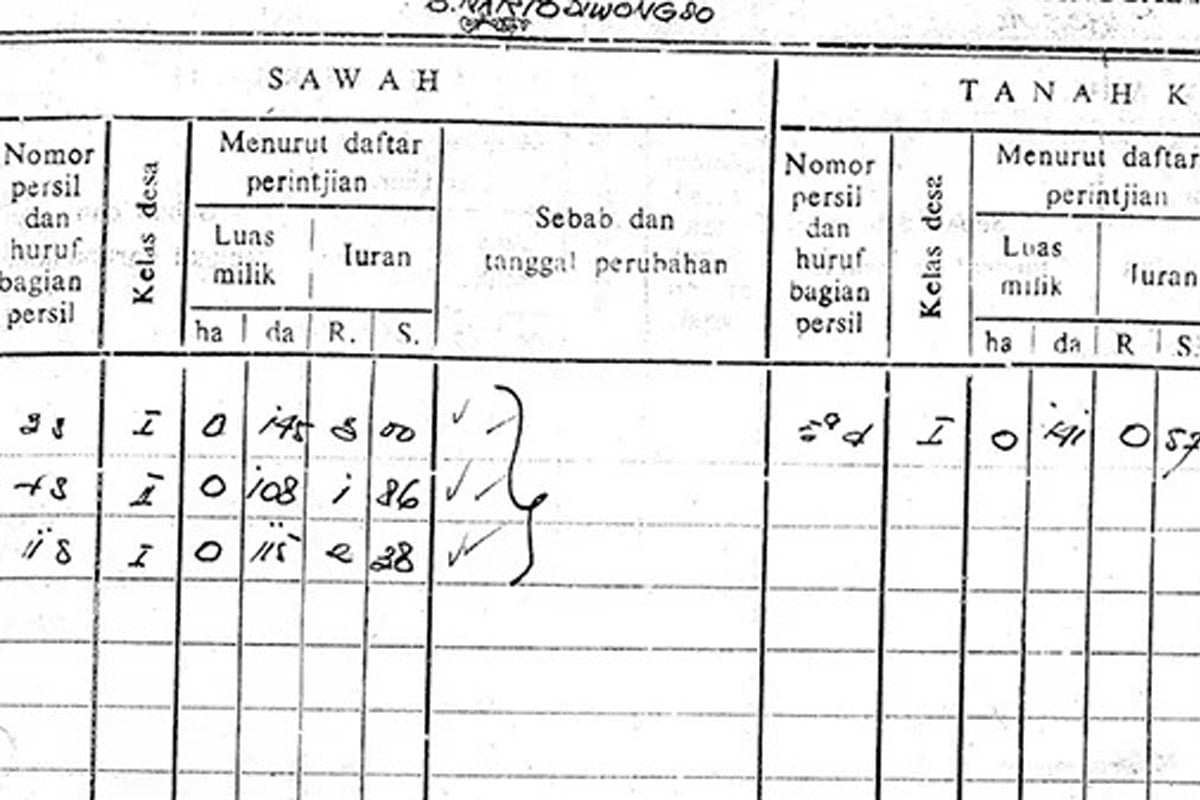 SAWAH
TANAH K
Nomor persil dan huruf bagian persil
Kelas desa
Menurut daftar perintjian
Luas milik
Iuran
ha da R. S.
Sebab dan tanggal perubahan
Nomor persil dan huruf bagian persil
Kelas desa
Menurut daftar perintjian
Luas milik
Iuran
ha da R S
I 0 145 00
II 0 108 1 86
I 0 115 2 38
I 0 141 0 57